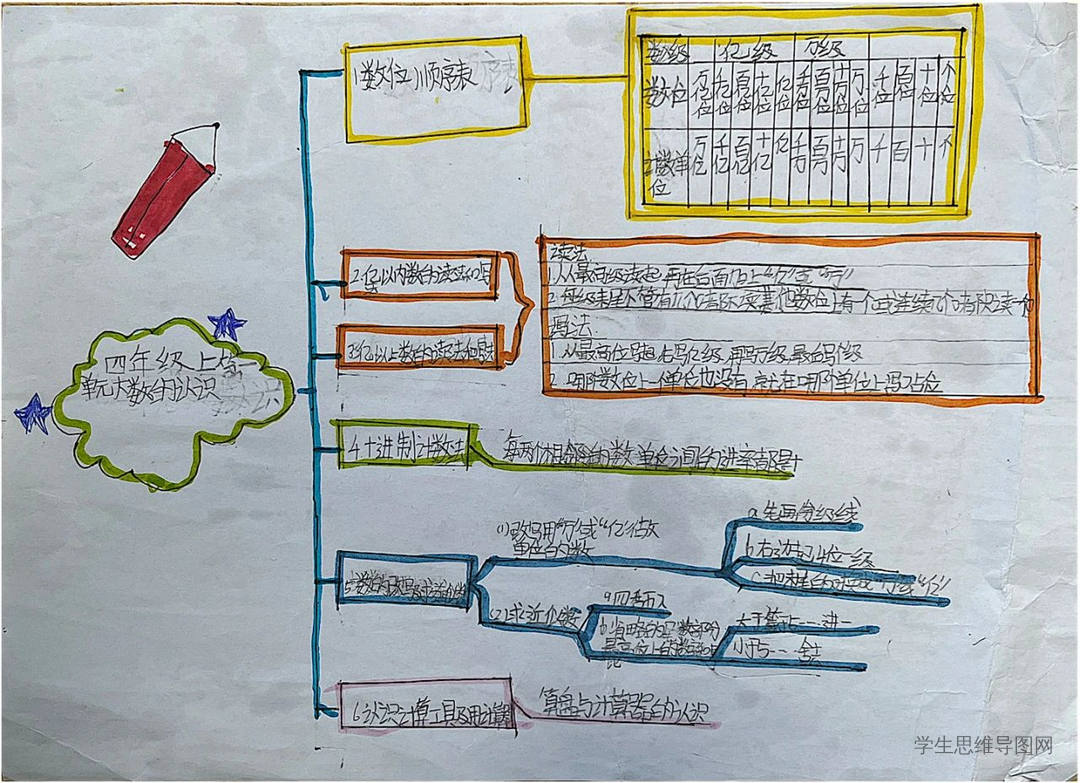 1数位顺序表
数级 亿级 万级
数位 万亿位 千亿位 百亿位 十亿位 亿位 千万位 百万位 十万位 万位 千位 百位 十位 个位
计数单位 万亿 千亿 百亿 十亿 亿 千万 百万 十万 万 千 百 十 个
2.亿以内数的读法和写
读法
1.从最高级读起,再在后面加上"亿"或"万"
2.每级末尾不管有几个0都不读其他数位上有一个或连续几个0都只读一个
写法
3.亿以上数的读法和写
1.从最高位写起,先写亿级,再写万级,最后写个级
2.哪个数位上一个单位也没有,就在哪个单位上写0占位
四年级上第一
单元大数的认识
4.十进制计数法
每两个相邻的计数单位之间的进率都是十
(1)改写用"万"或"亿"作
单位的数
a.先画分级线
b.右边起4位一级
5.数的改写及求近似数
(2)求近似数
a四舍五入
b省略的尾数部分
最高位上的数和5
比
大于等于5……进一
小于5……舍去
6.认识计算工具及用计算器
算盘与计算器的认识
学生思维导图网